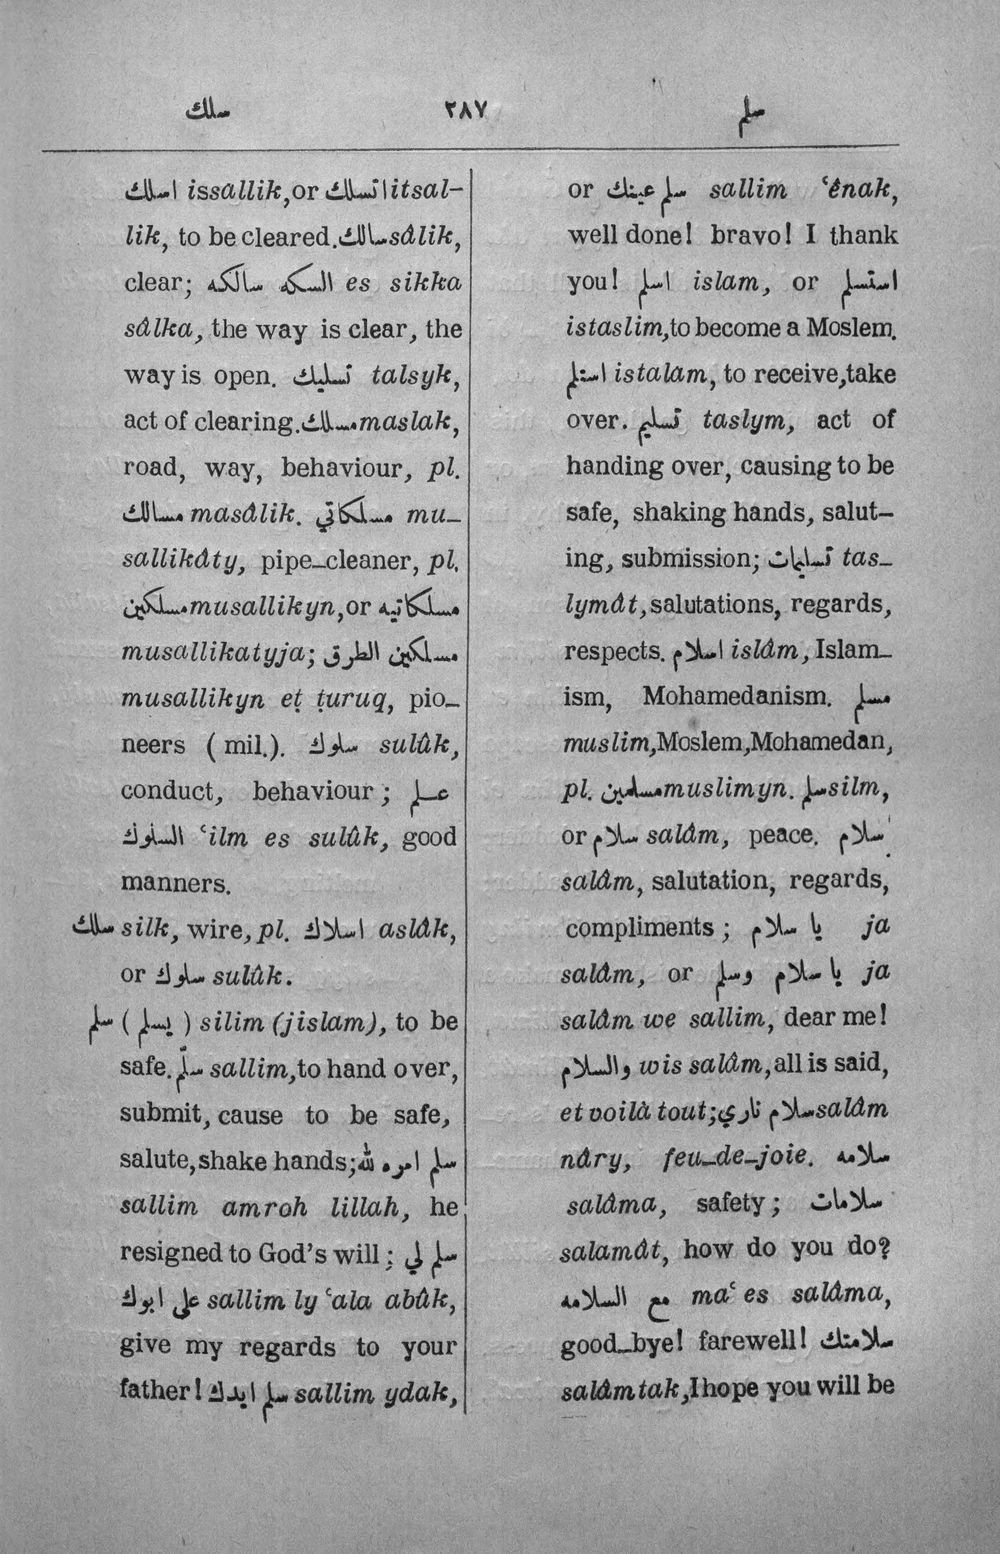 سلك ٢٨٧ سلم
اسلك issallik, or اتسلك itsal-
lik, to be cleared. سالك sâlik,
clear; السكه سالكه es sikka
sâlka, the way is clear, the
way is open. تسليك talsyk,
act of clearing. مسلك maslak,
road, way, behaviour, pl.
مسالك masâlik. مسلكاتي mu-
sallikâty, pipe-cleaner, pl.
مسلكين musallikyn, or مسلكاتيه
musallikatyja; مسلكين الطرق
musallikyn eṭ ṭuruq, pio-
neers (mil.). سلوك sulûk,
conduct, behaviour; علم
السلوك ʿilm es sulûk, good
manners.
سلك silk, wire, pl. اسلاك aslâk,
or سلوك sulûk.
سلم (يسلم) silim (jislam), to be
safe. سلّم sallim, to hand over,
submit, cause to be safe,
salute, shake hands; سلم امره لله
sallim amroh lillah, he
resigned to God's will; سلم لي
على ابوك sallim ly ʿala abûk,
give my regards to your
father! سلم ايدك sallim ydak,
or سلم عينك sallim ʿênak,
well done! bravo! I thank
you! اسلم islam, or استسلم
istaslim, to become a Moslem.
استلم istalam, to receive, take
over. تسليم taslym, act of
handing over, causing to be
safe, shaking hands, salut-
ing, submission; تسليمات tas-
lymât, salutations, regards,
respects. اسلام islâm, Islam-
ism, Mohamedanism. مسلم
muslim, Moslem, Mohamedan,
pl. مسلمين muslimyn. سلم silm,
or سلام salâm, peace. سلام
salâm, salutation, regards,
compliments; يا سلام ja
salâm, or يا سلام وسلم ja
salâm we sallim, dear me!
والسلام wis salâm, all is said,
et voilà tout; سلام ناري salâm
nâry, feu-de-joie. سلامه
salâma, safety; سلامات
salamât, how do you do?
مع السلامه maʿ es salâma,
good-bye! farewell! سلامتك
salâmtak, I hope you will be